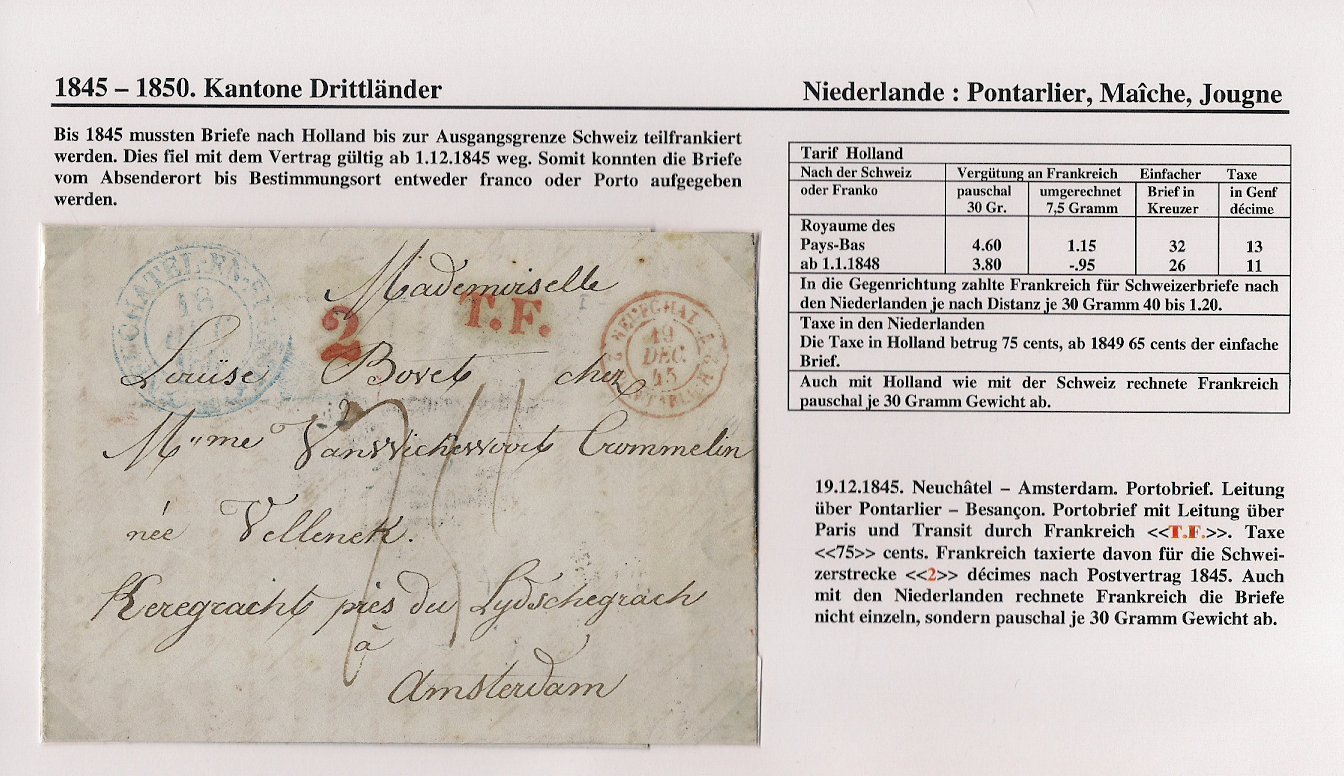 1845 – 1850. Kantone Drittländer
Niederlande : Pontarlier, Maîche, Jougne
Bis 1845 mussten Briefe nach Holland bis zur Ausgangsgrenze Schweiz teilfrankiert
werden. Dies fiel mit dem Vertrag gültig ab 1.12.1845 weg. Somit konnten die Briefe
vom Absenderort bis Bestimmungsort entweder franco oder Porto aufgegeben
werden.
Tarif Holland
Nach der Schweiz Vergütung an Frankreich Einfacher Taxe
oder Franko pauschal umgerechnet Brief in in Genf
30 Gr. 7,5 Gramm Kreuzer décime
Royaume des
Pays-Bas 4.60 1.15 32 13
ab 1.1.1848 3.80 -.95 26 11
In die Gegenrichtung zahlte Frankreich für Schweizerbriefe nach
den Niederlanden je nach Distanz je 30 Gramm 40 bis 1.20.
Taxe in den Niederlanden
Die Taxe in Holland betrug 75 cents, ab 1849 65 cents der einfache
Brief.
Auch mit Holland wie mit der Schweiz rechnete Frankreich
pauschal je 30 Gramm Gewicht ab.
18
2
T.F.
19
DEC
45
Mademoiselle
Louise Bovet chez
Mme VanWickevoort Crommelin
née Vellenek.
Keregracht près du Lydschegrach
à
Amsterdam
75
19.12.1845. Neuchâtel – Amsterdam. Portobrief. Leitung
über Pontarlier – Besançon. Portobrief mit Leitung über
Paris und Transit durch Frankreich <<T.F.>>. Taxe
<<75>> cents. Frankreich taxierte davon für die Schwei-
zerstrecke <<2>> décimes nach Postvertrag 1845. Auch
mit den Niederlanden rechnete Frankreich die Briefe
nicht einzeln, sondern pauschal je 30 Gramm Gewicht ab.